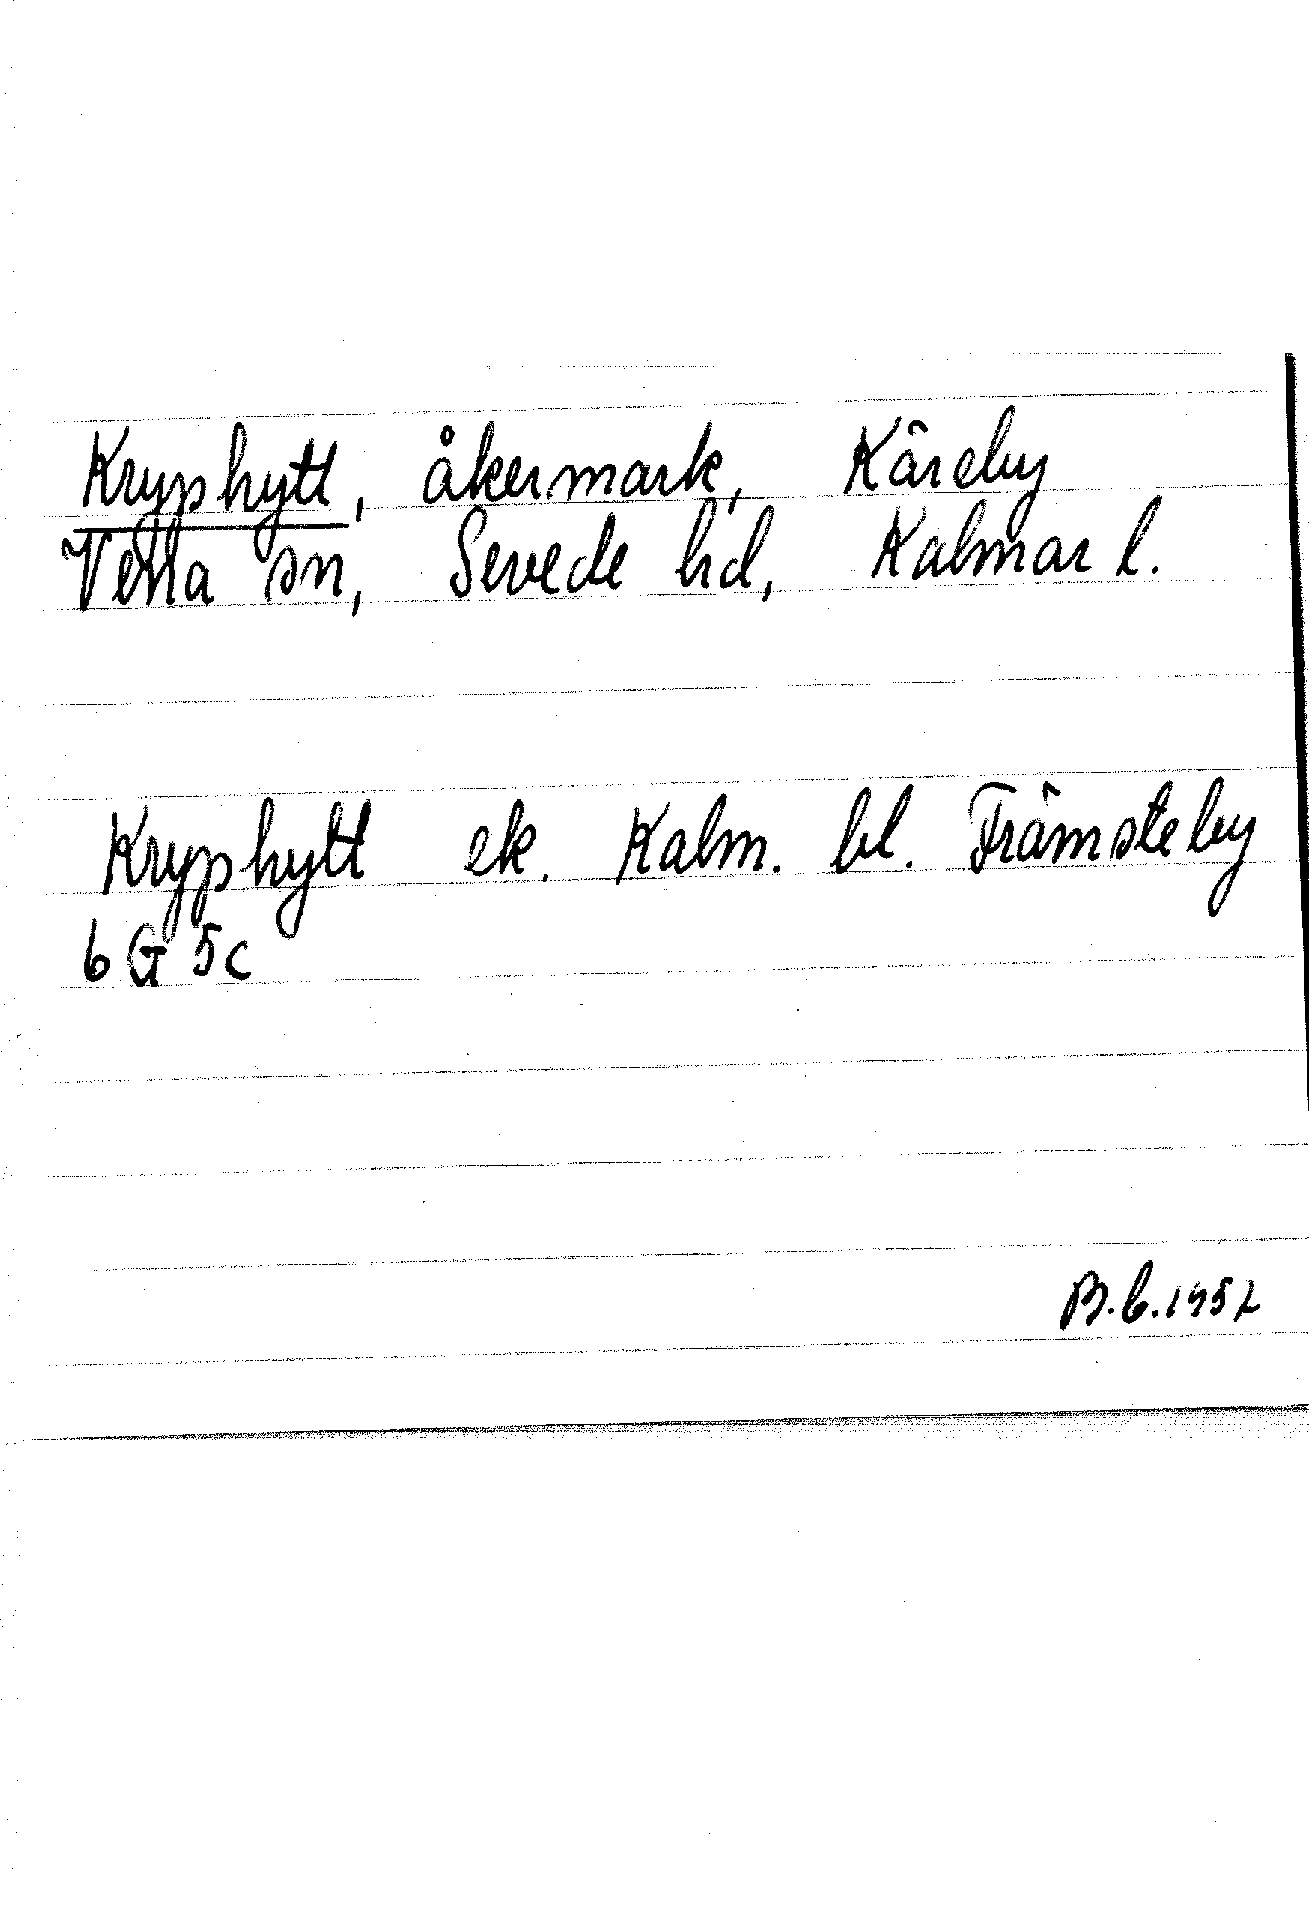 Kryphytt, åkermark, Käreby
Vena sn, Sevede hd, Kalmar l.
Kryphytt ek. Kalm. bl. Främsteby
6 G 5c
B.C.1952